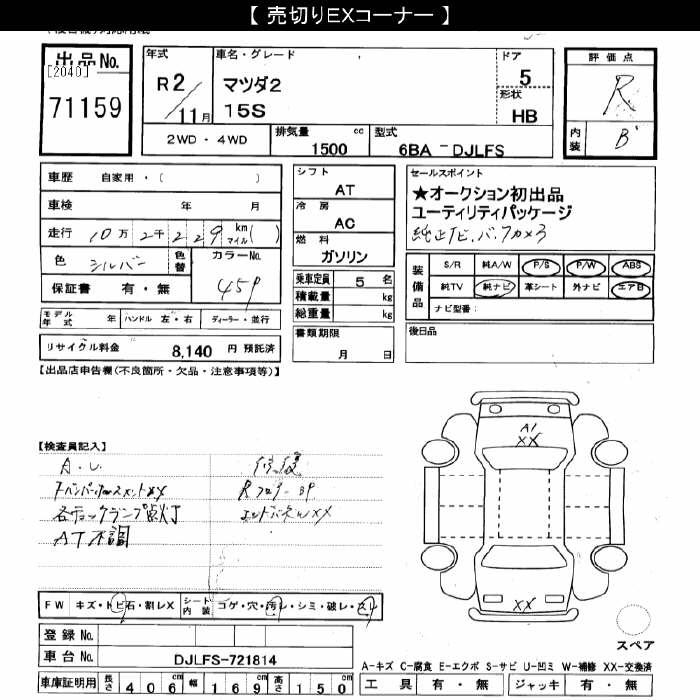 【 売切りEXコーナー 】
出品No.
[2040]
71159
年式
R2/11月
車名・グレード
マツダ2
15S
ドア
5
形状
HB
評価点
R
内装
B
2WD・4WD
排気量 cc
1500
型式
6BA － DJLFS
車歴 自家用・( )
車検 年 月
走行 10万2千229 km マイル( )
色 シルバー 色替
カラーNo.
45P
保証書 有・無
モデル年式 年 ハンドル 左・右 ディーラー・並行
リサイクル料金 8,140 円 預託済
シフト
AT
冷房
AC
燃料
ガソリン
乗車定員 5 名
積載量 kg
総重量 kg
書類期限
月 日
セールスポイント
★オークション初出品
ユーティリティパッケージ
純正ナビ.バックカメラ
装備品
S/R 純A/W P/S P/W ABS
純TV 純ナビ 革シート 外ナビ エアB
ナビ型番:
後日品
【出品店申告欄(不良箇所・欠品・注意事項等)】
【検査員記入】
A.U.
修復
XX
Rフロアー
エンドパネルXX
各チェックランプ点灯
AT不調
A1
XX
XX
スペア
FW キズ・トビ石・割レX シート内装 コゲ・穴・汚レ・シミ・破レ・スレ
登録No.
車台No. DJLFS-721814
車庫証明用 長さ 406 cm 幅 169 cm 高さ 150 cm
A-キズ C-腐食 E-エクボ S-サビ U-凹ミ W-補修 XX-交換済
工具 有・無 ジャッキ 有・無